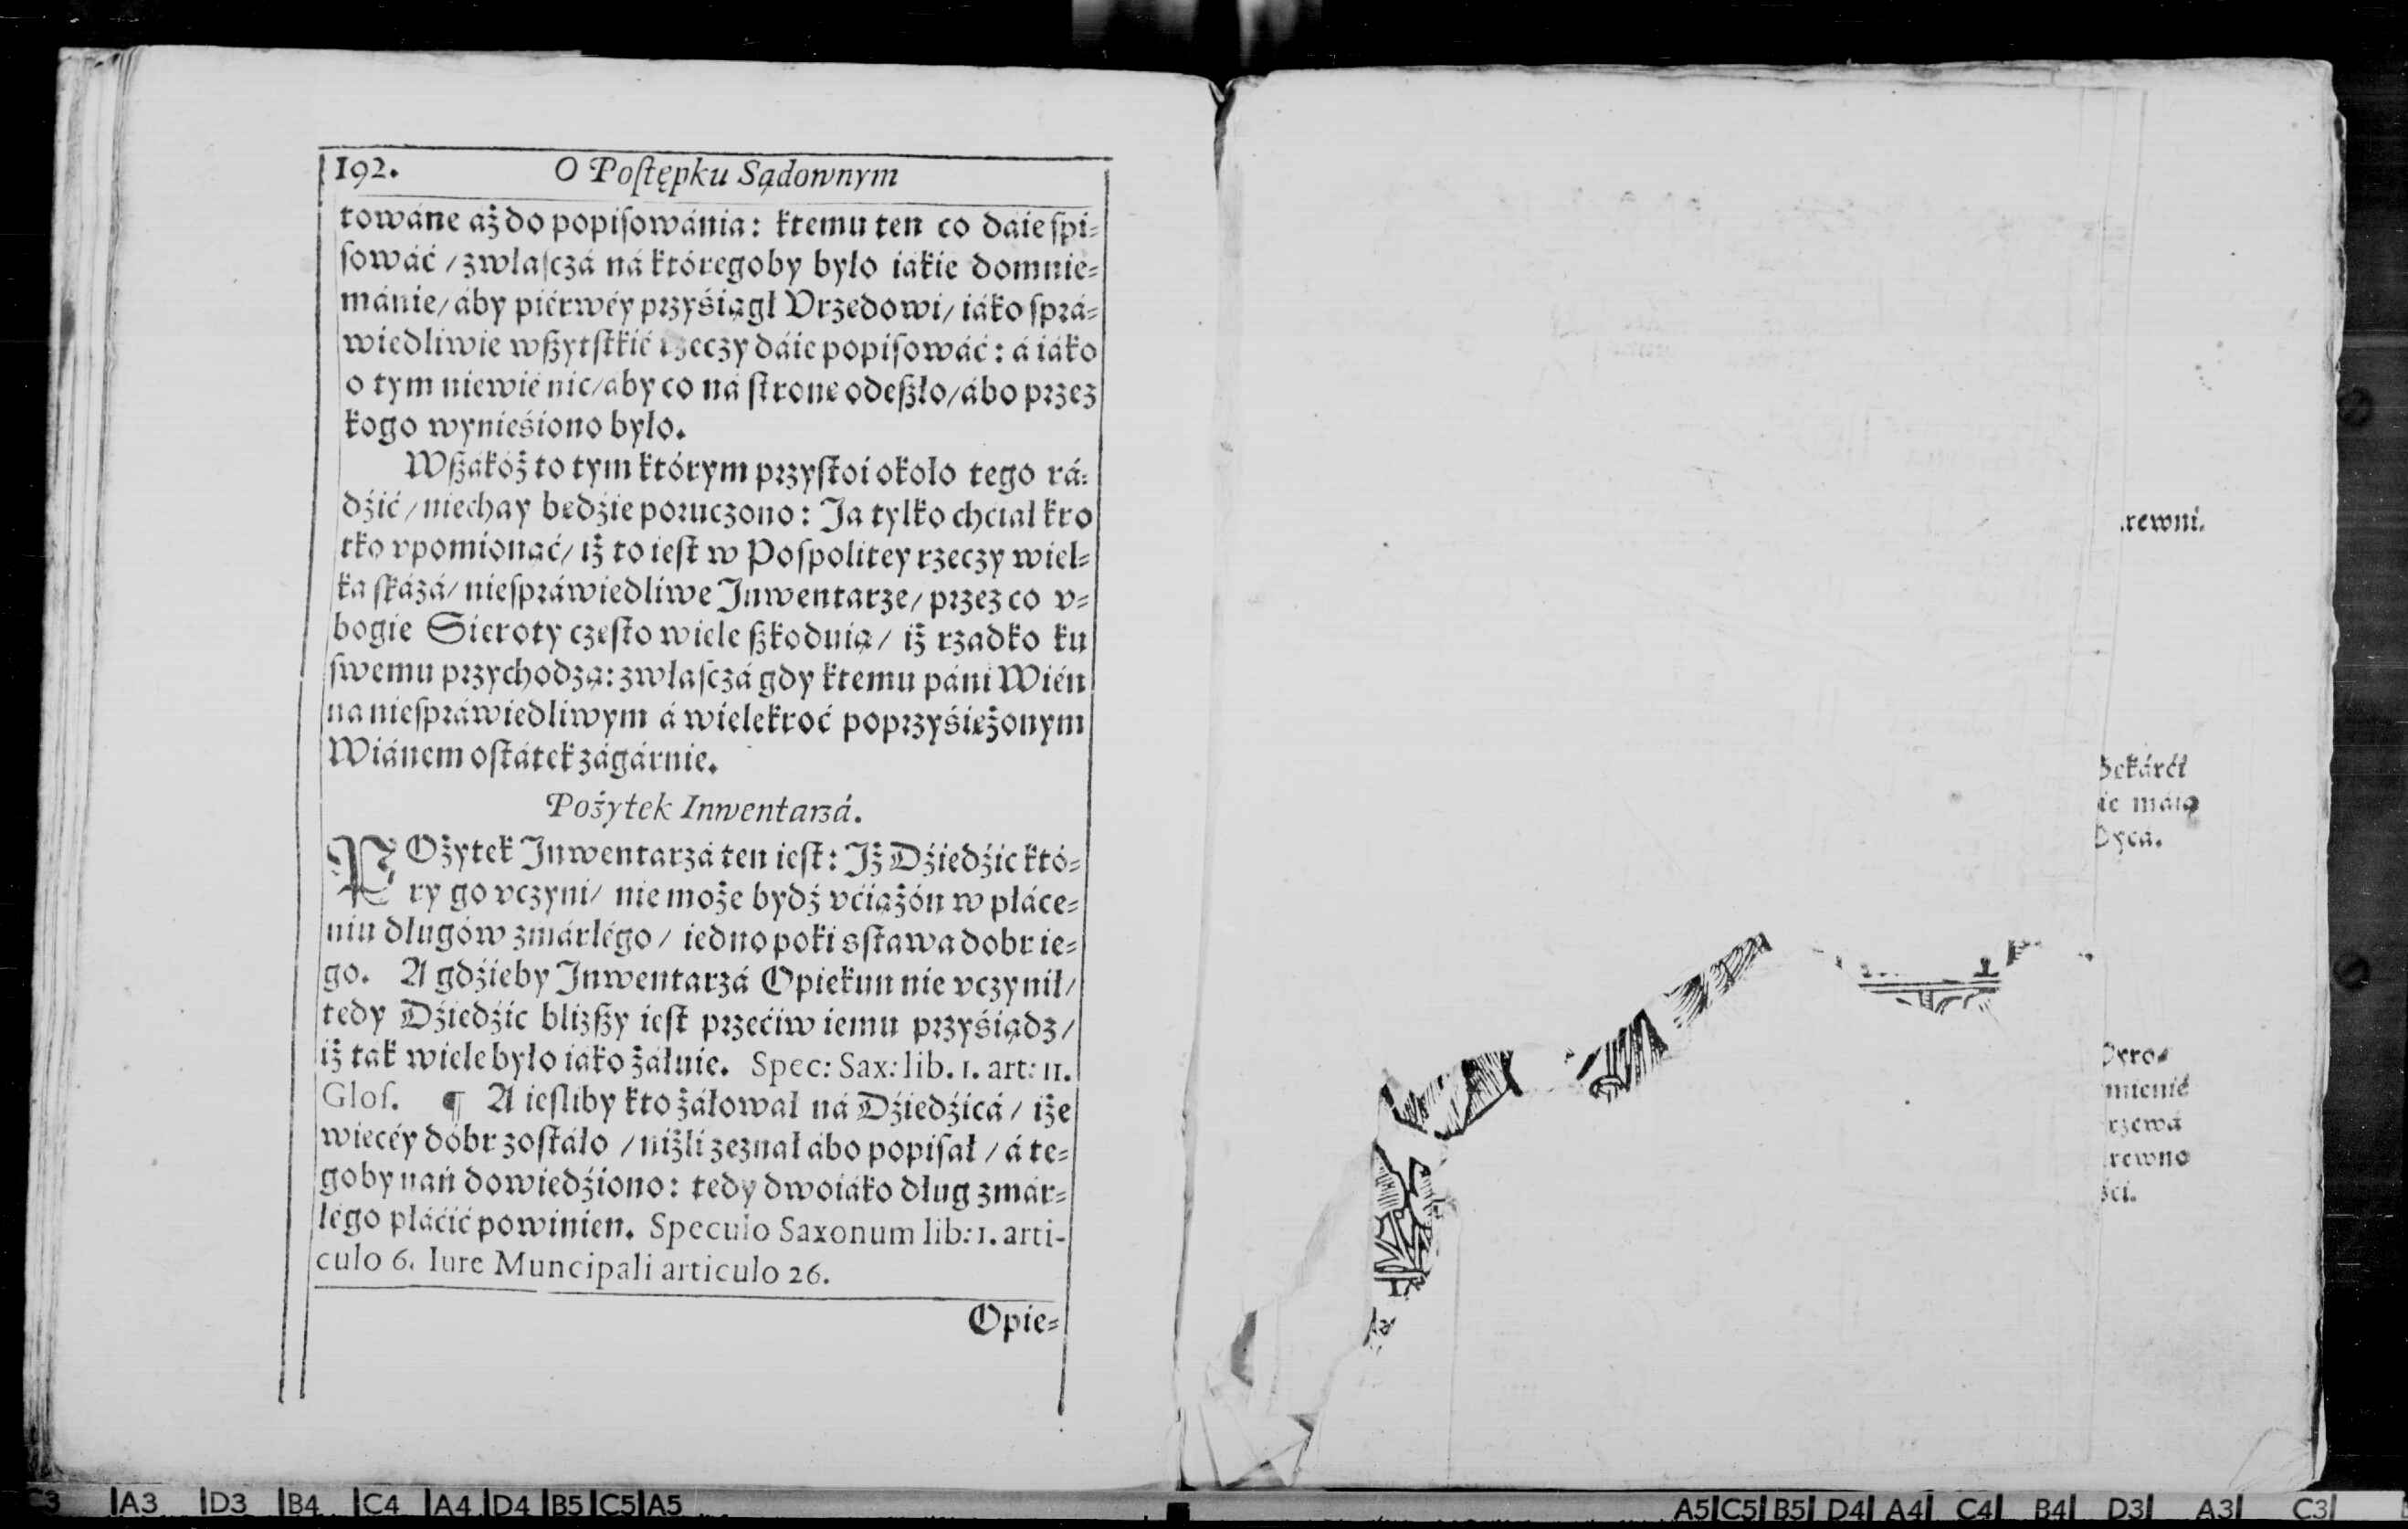 192. O Poſtępku Sądownym
towáne aż do popiſowánia: ktemu ten co daie ſpi⸗
ſowáć / zwlaſczá ná któregoby było iákie domnie⸗
mánie / áby piérwéy przyśiągł Vrzedowi / iáko ſprá⸗
wiedliwie wßytſtkié rzeczy dáie popiſowáć: á iáko
o tym niewié nic / aby co ná ſtrone odeßło / ábo przez
kogo wynieśiono było.
Wßákóż to tym którym przyſtoi około tego rá⸗
dźić / niechay bedźie poruczono: Ja tylko chciał kro
tko vpomionąć / iż to ieſt w Poſpolitey rzeczy wiel⸗
ka ſkázá / nieſpráwiedliwe Inwentarze / przez co v⸗
bogie Sieroty czeſto wiele ßkoduią / iż rzadko ku
ſwemu przychodzą: zwłaſczá gdy ktemu páni Wién
na nieſpráwiedliwym á wielekroć poprzyśieżonym
Wiánem oſtátek zágárnie.
Pożytek Inwentarzá.
POżytek Inwentarzá ten ieſt: Iż Dźiedźic któ⸗
ry go vczyni / nie może bydź vćiążón w płáce⸗
niu długów zmárłégo / iedno poki sſtawa dobr ie⸗
go. A gdźieby Inwentarzá Opiekun nie vczynił /
tedy Dźiedźic bliżßy ieſt przećiw iemu przyśiądz /
iż ták wiele było iáko żáłuie. Spec: Sax: lib. 1. art: 11.
Gloſ. ¶ A ieſliby kto żáłował ná Dźiedźicá / iże
wiecéy dóbr zoſtáło / niżli zeznał ábo popiſał / á te⸗
goby nań dowiedźiono: tedy dwoiáko dług zmár⸗
łégo płáćić powinien. Speculo Saxonum lib: 1. arti-
culo 6. Iure Muncipali articulo 26.
Opie⸗
rewni.
ie máią
dycá.
mienié
rzewá
rewno
śći.